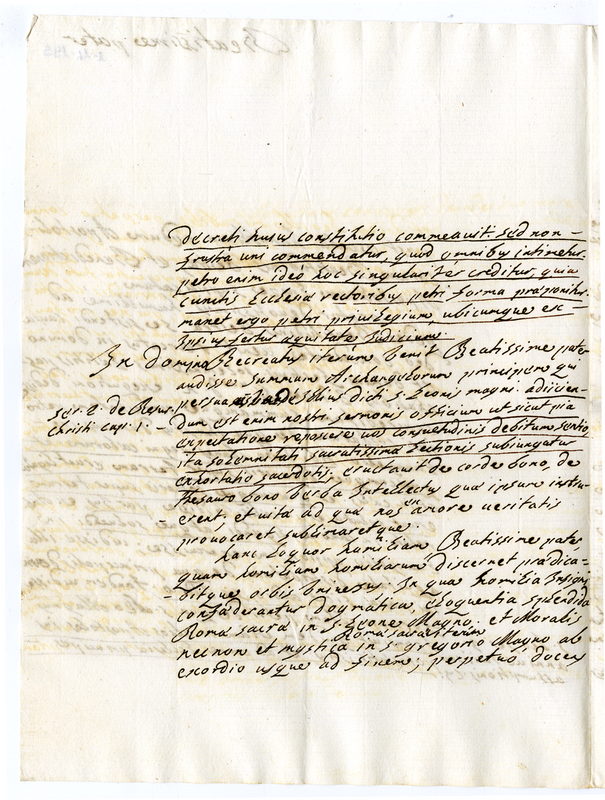 decreti huius constitutio commeauit. sed non -
frustra uni commendatur, quod omnibus intimetur.
petro enim ideo hoc singulariter creditur, quia
cunctis Ecclesiæ rectoribus petri forma præponitur.
manet ergo petri priuilegium, ubicumque ex -
ipsius fertur æquitate Judicium.
In domino Recreatus iterum Venit Beatissime pater
audisse summum Archangelorum principem qui
persua illius dicti s. Leonis magni: adiicien-
ser. 2. de Resur.
christi cap. 1. -
dum est enim nostri sermonis officium ut sicut pia
expectatione reposcere uos consuetudinis debitum sentio
ita solemnitati sacratissimæ Lectionis subiungatur
exhortatio sacerdotis, eructauit de corde bono, de
thesauro bono Verba Intellectus quæ ipsum instru-
- erent, et uita ad quæ nos amore ueritatis
prouocaret sublimaretque.
hanc loquor homiliam, Beatissime pater,
quam homiliam homiliarum discernet prædica-
- bitque orbis Vniuersus. In qua homilia Insigni
confœderantur dogmatica, eloquentia splendida
Roma sacra in s. Leone Magno, et Moralis
Roma sacra iterum
necnon et mystica in s. gregorio Magno ab
exordio usque ad finem, perpetuo, doces